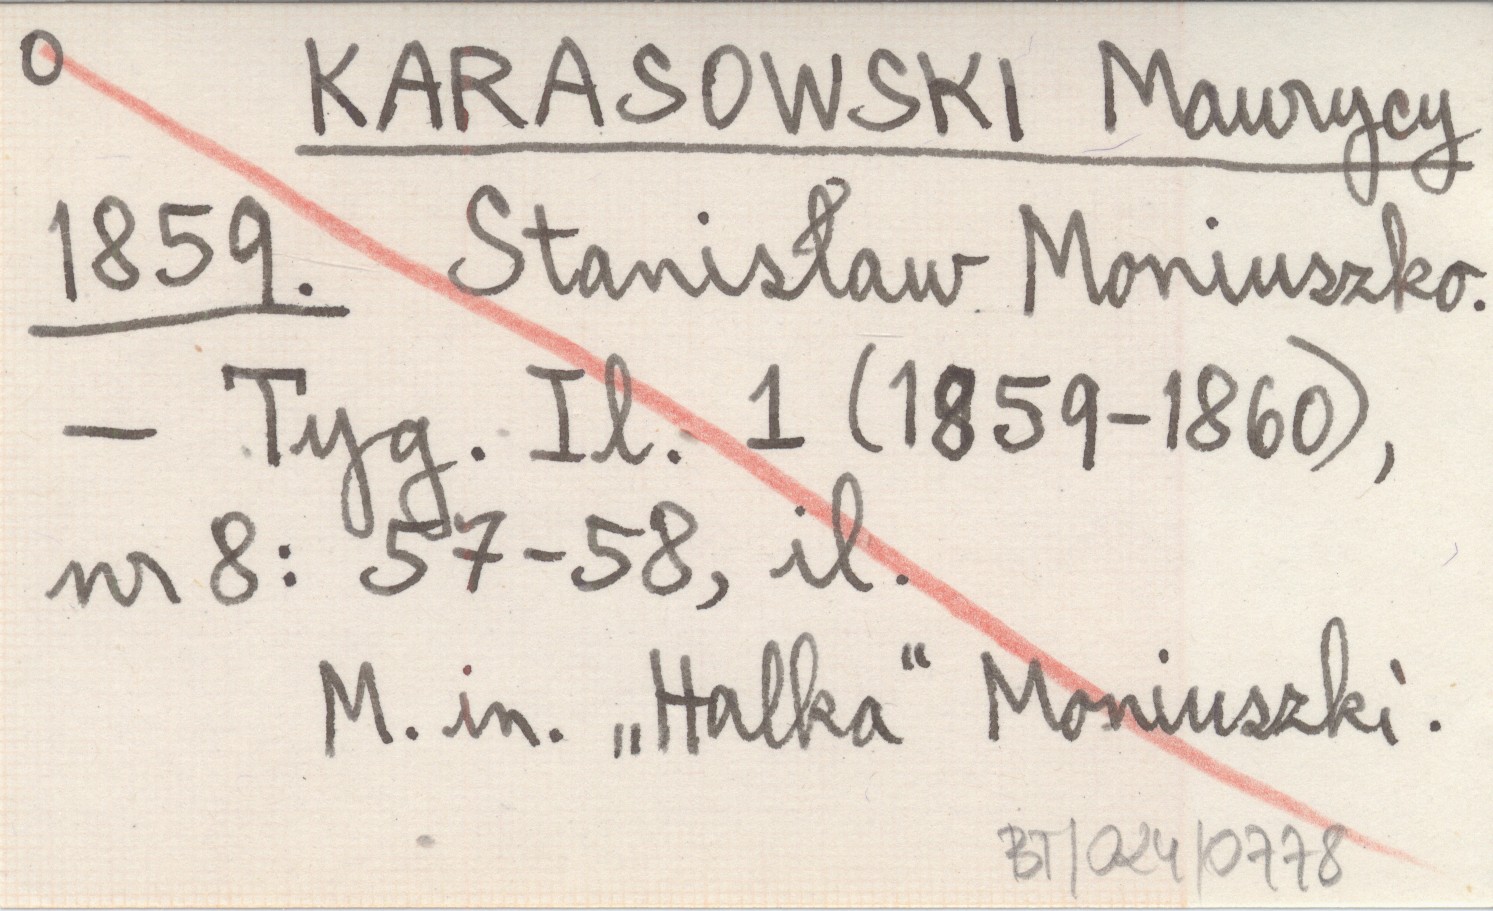 O KARASOWSKI Maurycy
1859. Stanisław Moniuszko.
— Tyg. Il. 1 (1859-1860),
nr 8: 57-58, il.
M. in. „Halka“ Moniuszki.
BT/024/0778